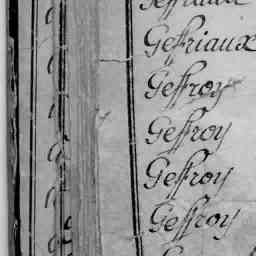 Geffriaux
Geffroy
Geffroy
Geffroy
Geffroy